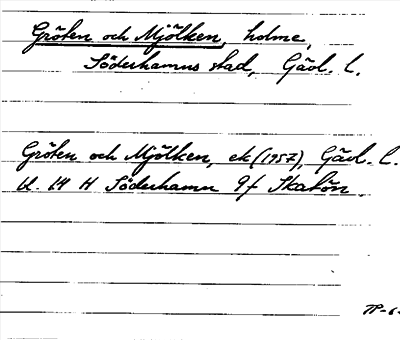 Gröten och Mjölken, holme,
Söderhamns stad, Gävl. l.
Gröten och Mjölken, ek (1957), Gävl. l.
U. 14 H Söderhamn 9f Skatön